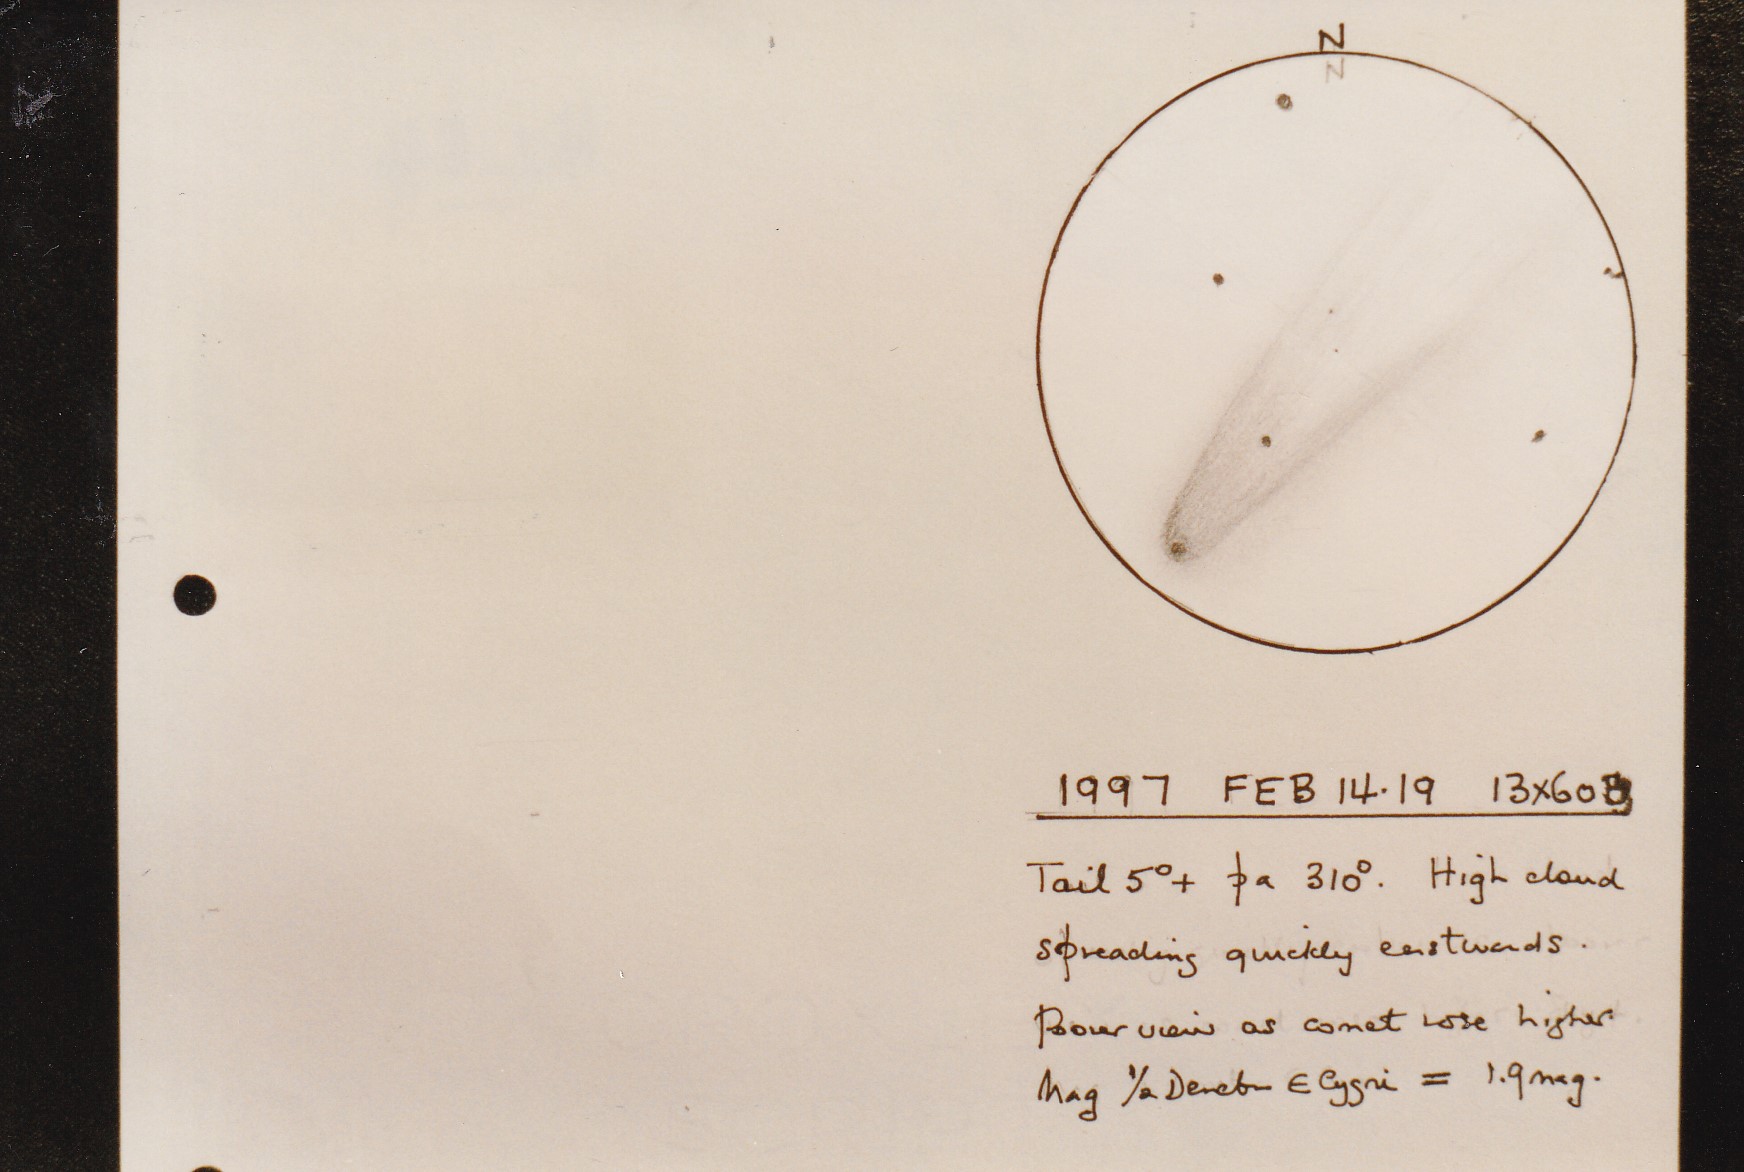 N
N
1997 FEB 14.19 13x60B
Tail 5°+ pa 310°. High cloud
spreading quickly eastwards.
Poorer view as comet rose higher.
Mag 1/2 Deneb ε Cygni = 1.9 mag.